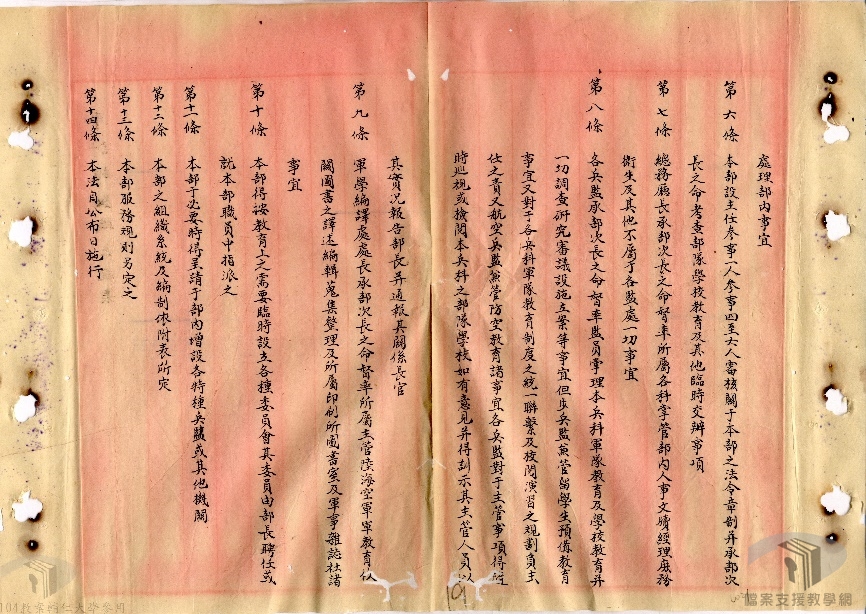 處理部內事宜
第六條 本部設主任參事一人參事四至六人審核關于本部之法令章制并承部次
長之命考查部隊學校教育及其他臨時交辦事項
第七條 總務廳長承部次長之命督率所屬各科掌管部內人事文牘經理庶務
衛生及其他不屬于各監處一切事宜
第八條 各兵監承部次長之命督率監員掌理本兵科軍隊教育及學校教育并
一切調查研究審議設施立案等事宜但步兵監兼管留學生預備教育
事宜又對于各兵科軍隊教育制度之統一聯繫及校閱演習之規劃負主
任之責又航空兵監兼管防空教育諸事宜各兵監對于主管事項得隨
時巡視或檢閱本兵科之部隊學校如有意見并得訓示其主管人員以
其實況報告部長并通報其關係長官
第九條 軍學編譯處處長承部次長之命督率所屬主管陸海空軍軍教育以
關圖書之譯述編輯蒐集整理及所屬印刷所圖書室及軍事雜誌社諸
事宜
第十條 本部得按教育上之需要臨時設立各種委員會其委員由部長聘任或
就本部職員中指派之
第十一條 本部于必要時得呈請于部內增設各特種兵監或其他機關
第十二條 本部之組織系統及編制依附表所定
第十三條 本部服務規則另定之
第十四條 本法自公布日施行
191
檔案支援教學網